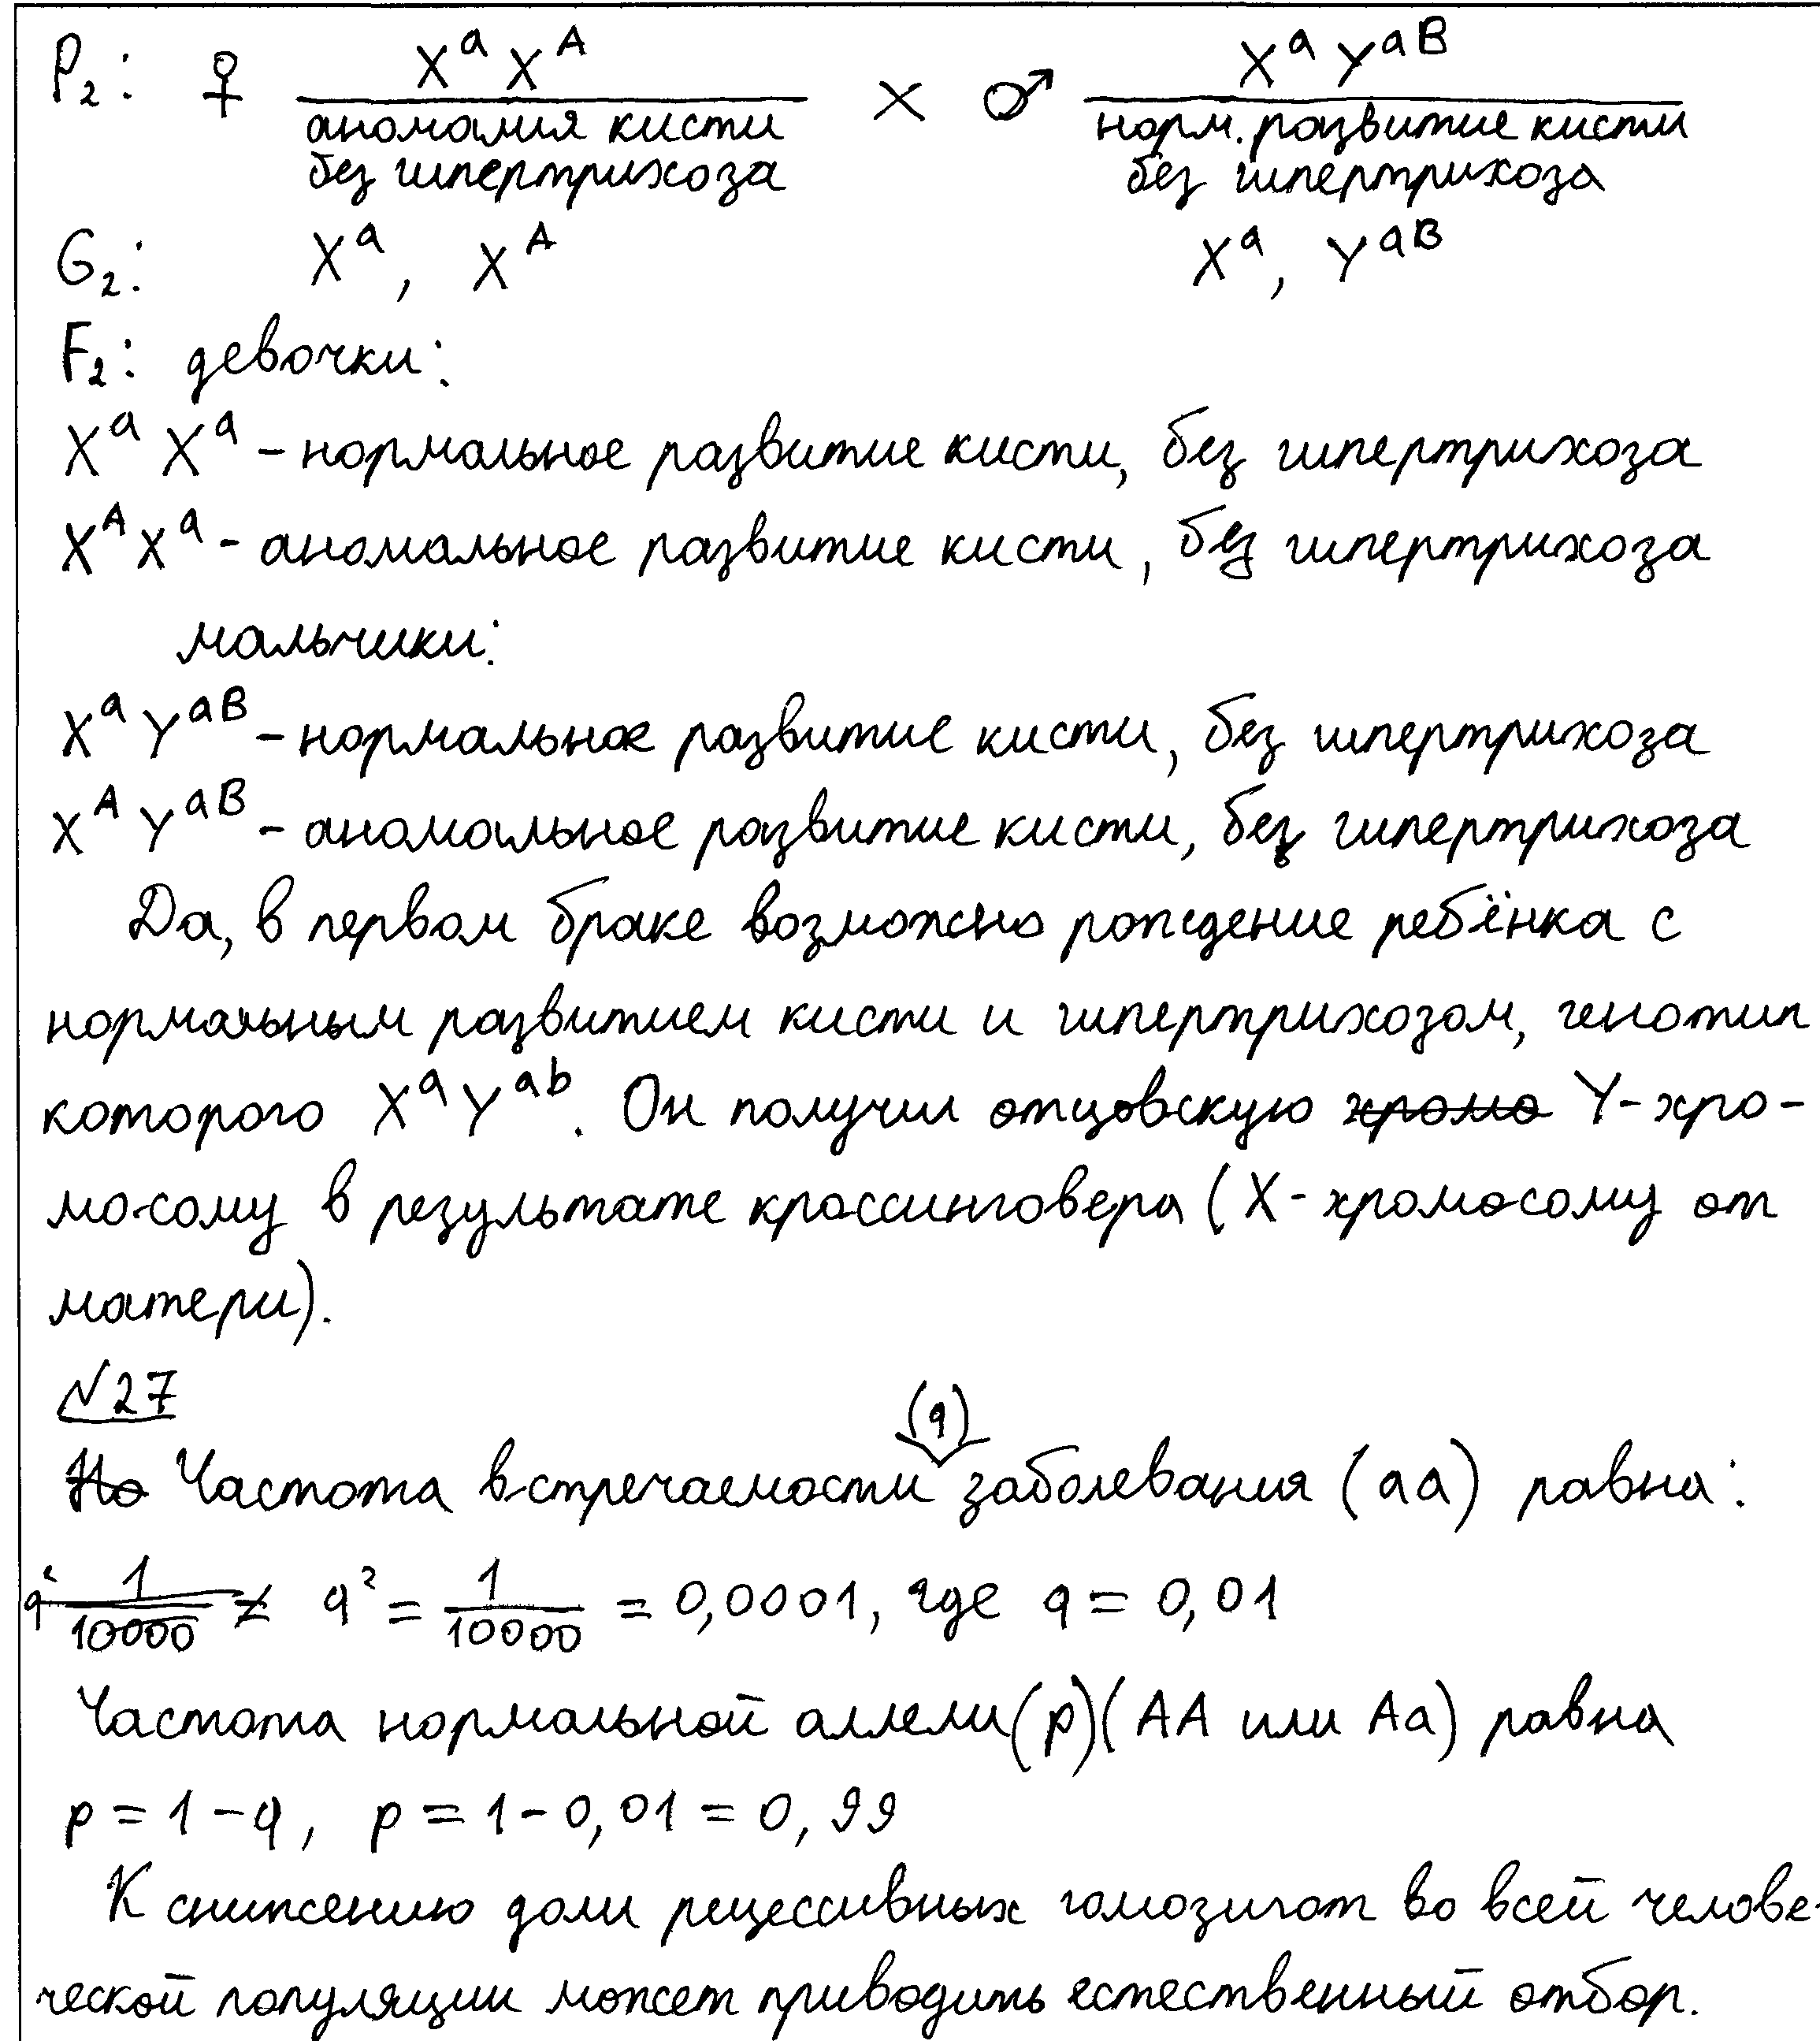 P₂: ♀ XᵃXᴬ × ♂ XᵃYᵃᴮ
аномалия кисти норм. развитие кисти
без гипертрихоза без гипертрихоза
G₂: Xᵃ, Xᴬ Xᵃ, Yᵃᴮ
F₂: девочки:
XᵃXᵃ – нормальное развитие кисти, без гипертрихоза
XᴬXᵃ – аномальное развитие кисти, без гипертрихоза
мальчики:
XᵃYᵃᴮ – нормальное развитие кисти, без гипертрихоза
XᴬYᵃᴮ – аномальное развитие кисти, без гипертрихоза
Да, в первом браке возможно рождение ребёнка с
нормальным развитием кисти и гипертрихозом, генотип
которого XᵃYᵃᵇ. Он получил отцовскую хромо Y-хро-
мосому в результате кроссинговера (X-хромосому от
матери).
№27
(q)
Но Частота встречаемости заболевания (aa) равна:
q² 1/10000 = q² = 1/10000 = 0,0001, где q = 0,01
Частота нормальной аллели (p) (AA или Aa) равна
p = 1 – q, p = 1 – 0,01 = 0,99
К снижению доли рецессивных гомозигот во всей челове-
ческой популяции может приводить естественный отбор.